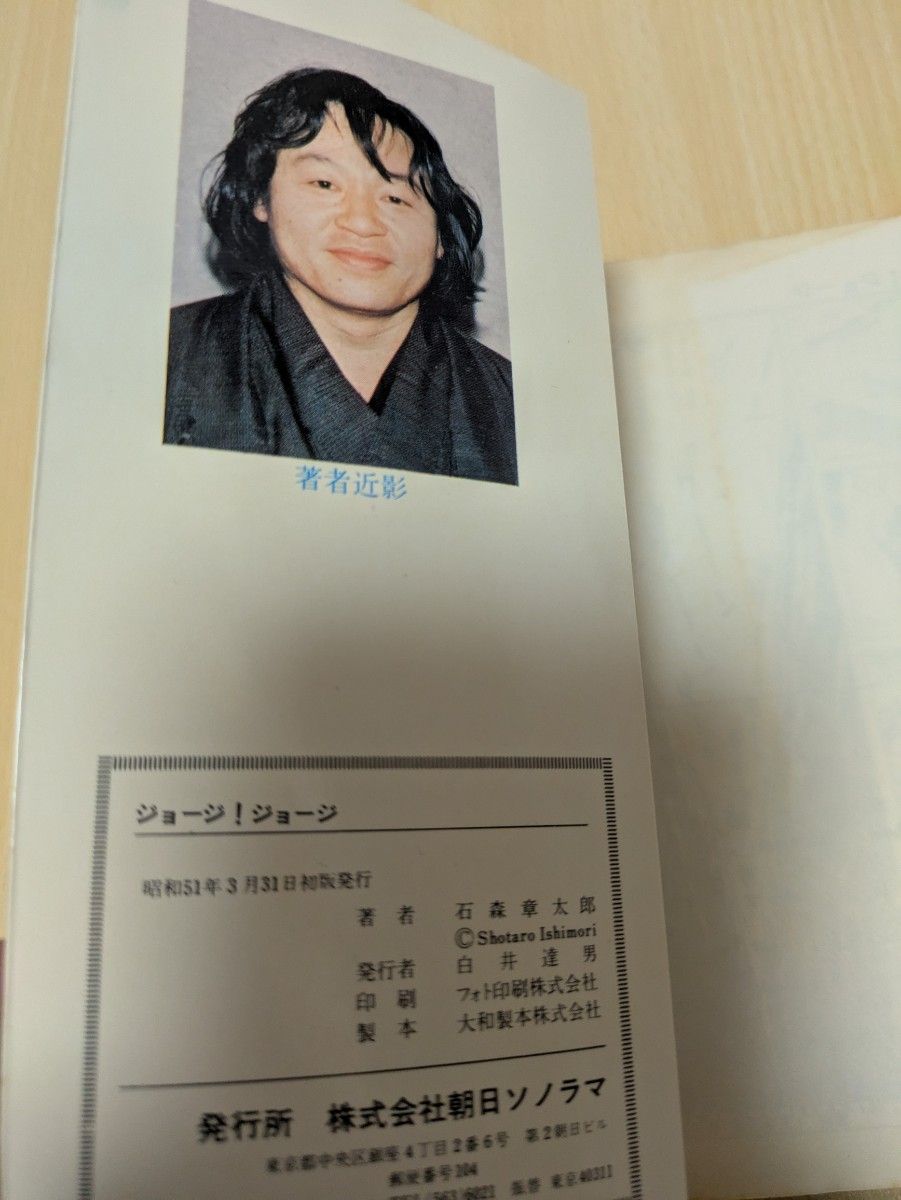 著者近影
ジョージ！ジョージ
昭和51年3月31日初版発行
著者 石森章太郎
©Shotaro Ishimori
発行者 白井達男
印刷 フォト印刷株式会社
製本 大和製本株式会社
発行所 株式会社朝日ソノラマ
東京都中央区銀座4丁目2番6号 第2朝日ビル
郵便番号104
TEL (563) 6021 振替 東京40311